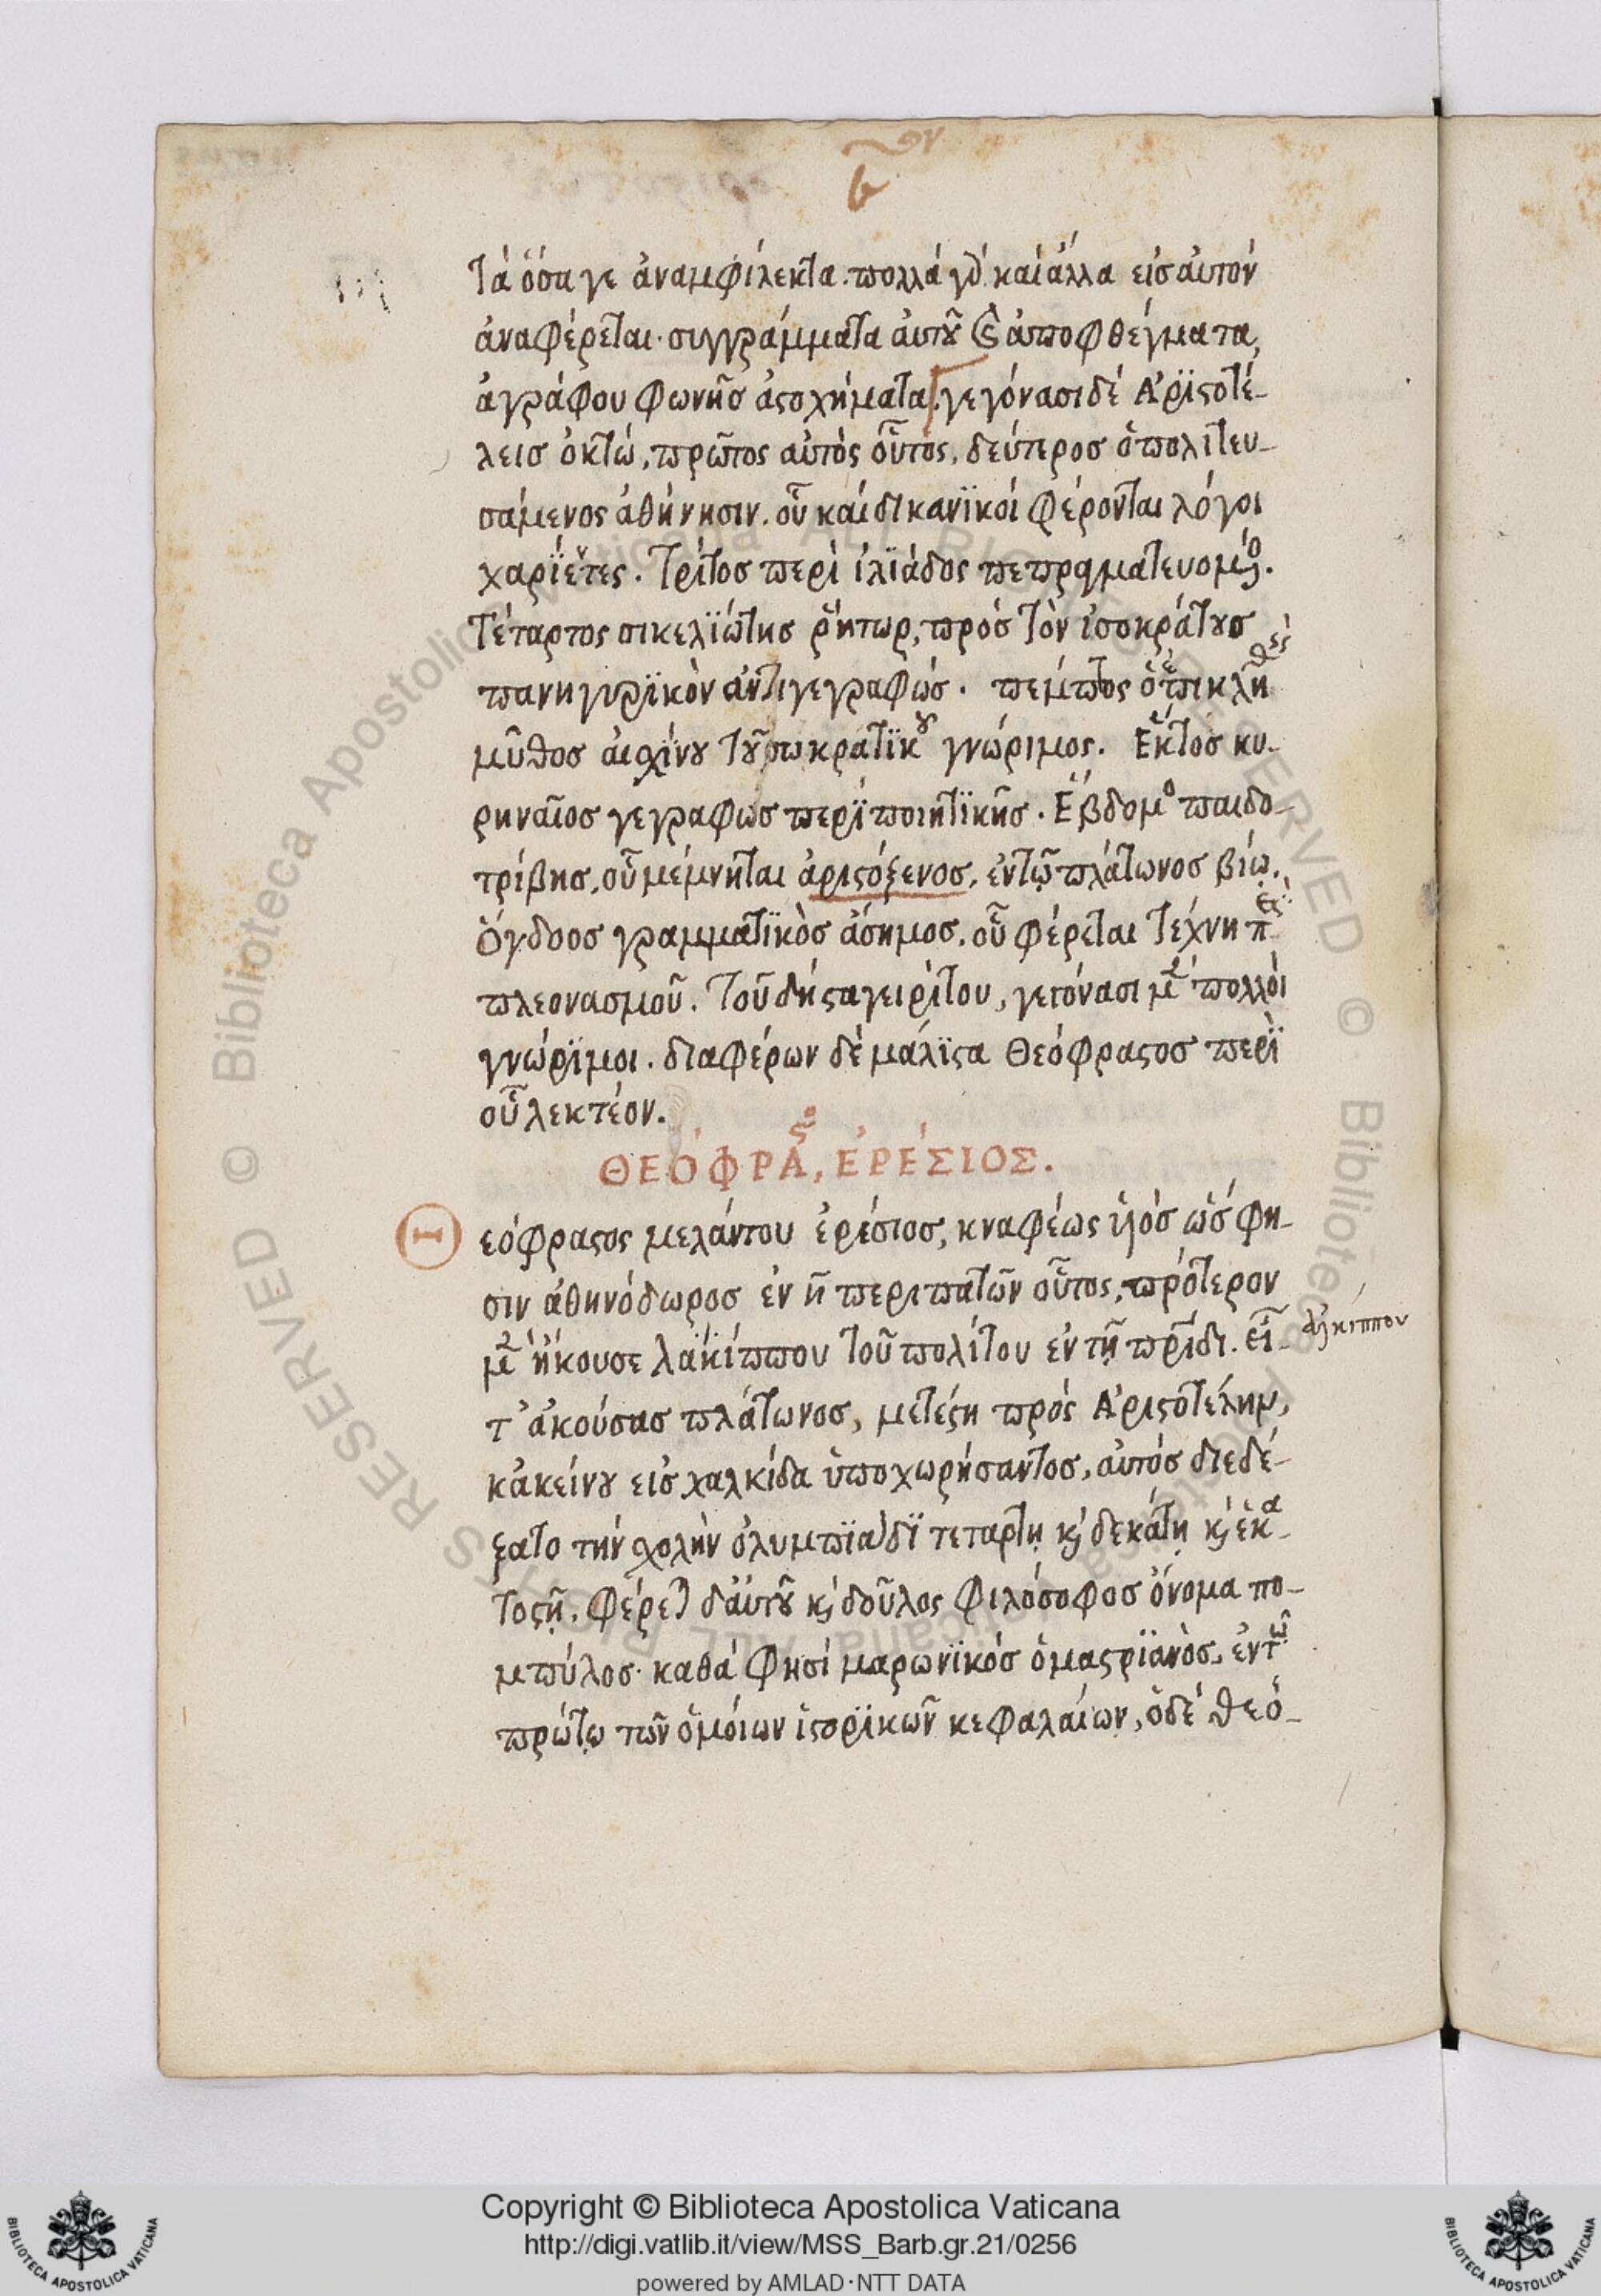 τὰ ὅσα γε ἀναμφίλεκτα. πολλά γδ καὶ ἄλλα εἰσ αὐτόν
ἀναφέρεται. συγγράμματα ἀυτȣ͂ ἀποφθέγματα,
ἀγράφου φωνῆσ ἀςοχήματα. γεγόνασι δέ Ἀρϊςοτέ-
λεισ ὀκτώ, πρῶτος αὐτὸς οὗτος, δεύτεροσ ὁ πολιτευ-
σάμενος ἀθήνησιν. οὗ καί δικανϊκοί φέρονται λόγοι
χαρϊέτες. τρίτοσ περὶ ἰλϊάδος πεπραγματευομέ.
τέταρτος σικελϊώτησ ῥήτωρ, πρόσ τὸν ἰσοκράτȣσ
πανηγυρϊκὸν ἀντιγεγραφὼσ. πεμπτος ὁ ἐπικλη
μῦθοσ ἀισχίνȣ τȣ͂ σωκρατϊκȣ γνώριμος. Ἕκτοσ κυ-
ρηναῖοσ γεγραφὼσ περϊ ποιητϊκῆσ. Ἕβδομο παιδο-
τρίβησ, οὗ μέμνηται ἀριςόξενοσ, ἐν τῷ πλάτωνοσ βίῳ.
Ὄγδοοσ γραμματϊκὸσ ἄσημοσ, οὗ φέρεται τέχνη π
πλεονασμοῦ. Τοῦ δή ςαγειρίτου, γεγόνασι μ πολλὸι
γνώρϊμοι. διαφέρων δὲ μάλϊςα Θεόφραςοσ περϊ
οὗ λεκτέον.
ΘΕΌΦΡΑ, ἘΡΈΣΙΟΣ.
Θεόφραςος μελάντου ἐρέσιοσ, κναφέως ὑιόσ ὥσ φη-
σιν ἀθηνόδωροσ ἐν η περιπατῶν οὗτος, πρότερον
μ ἤκουσε λακίππου τοῦ πολίτου ἐν τῇ πρίδι. εἶ-
ἀλκιππου
τ’ ἀκούσασ πλάτωνοσ, μετέςη πρός Ἀριςοτέλην,
κἀκείνȣ εἰσ χαλκίδα ὑποχωρήσαντοσ, αὐτόσ διεδέ-
ξατο τήν χολὴν ὀλυμπϊάδϊ τεταρτῃ κὶ δεκάτῃ κὶ ἑκα-
τοςῇ. φέρε) δ’ ἀυτȣ͂ κὶ δοῦλος φιλόσοφοσ ὄνομα πο-
μπύλοσ. καθά φησί μαρωνϊκόσ ὁ μαςρϊανὸσ, ἐν τῶ
πρώτῳ τῶν ὁμόιων ἱςορϊκῶν κεφαλαίων, ὁ δέ θεό-
Copyright © Biblioteca Apostolica Vaticana
http://digi.vatlib.it/view/MSS_Barb.gr.21/0256
powered by AMLAD·NTT DATA